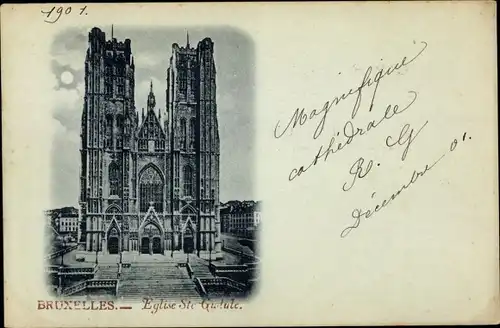 1901.
Magnifique
cathédrale
R. G
Décembre 01.
BRUXELLES. — Eglise Ste Gudule.